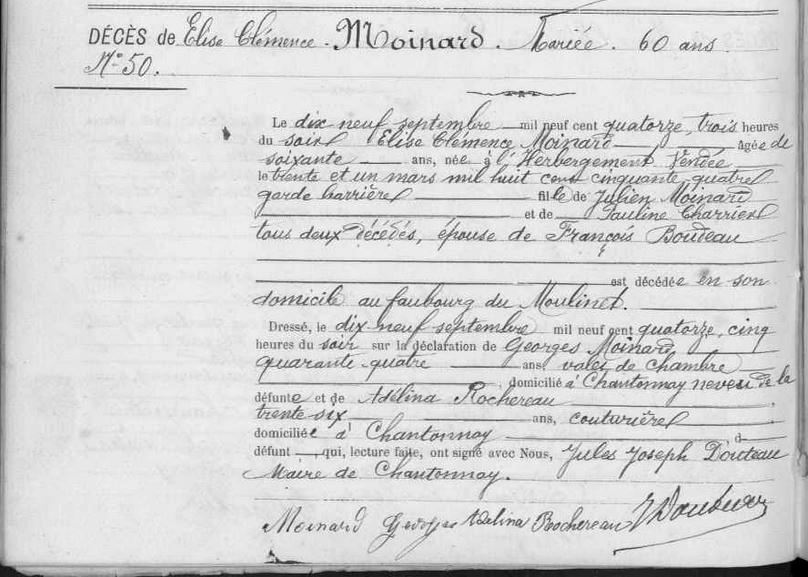 DÉCÈS de Elise Clémence Moinard. Mariée. 60 ans
N° 50.
Le dix neuf septembre mil neuf cent quatorze, trois heures
du soir Elise Clémence Moinard âgée de
soixante ans, née à l'Herbergement Vendée
le trente et un mars mil huit cent cinquante quatre
garde barrière fille de Julien Moinard
et de Pauline Charrier
tous deux décédés, épouse de François Boudeau
est décédée en son
domicile au faubourg du Moulinet.
Dressé, le dix neuf septembre mil neuf cent quatorze, cinq
heures du soir sur la déclaration de Georges Moinard
quarante quatre ans, valet de chambre
, domicilié à Chantonnay neveu de la
défunte et de Adélina Rochereau
trente six ans, couturière
domiciliée à Chantonnay d
défunt , qui, lecture faite, ont signé avec Nous, Jules Joseph
Maire de Chantonnay.
Moinard Georges Adelina Rochereau